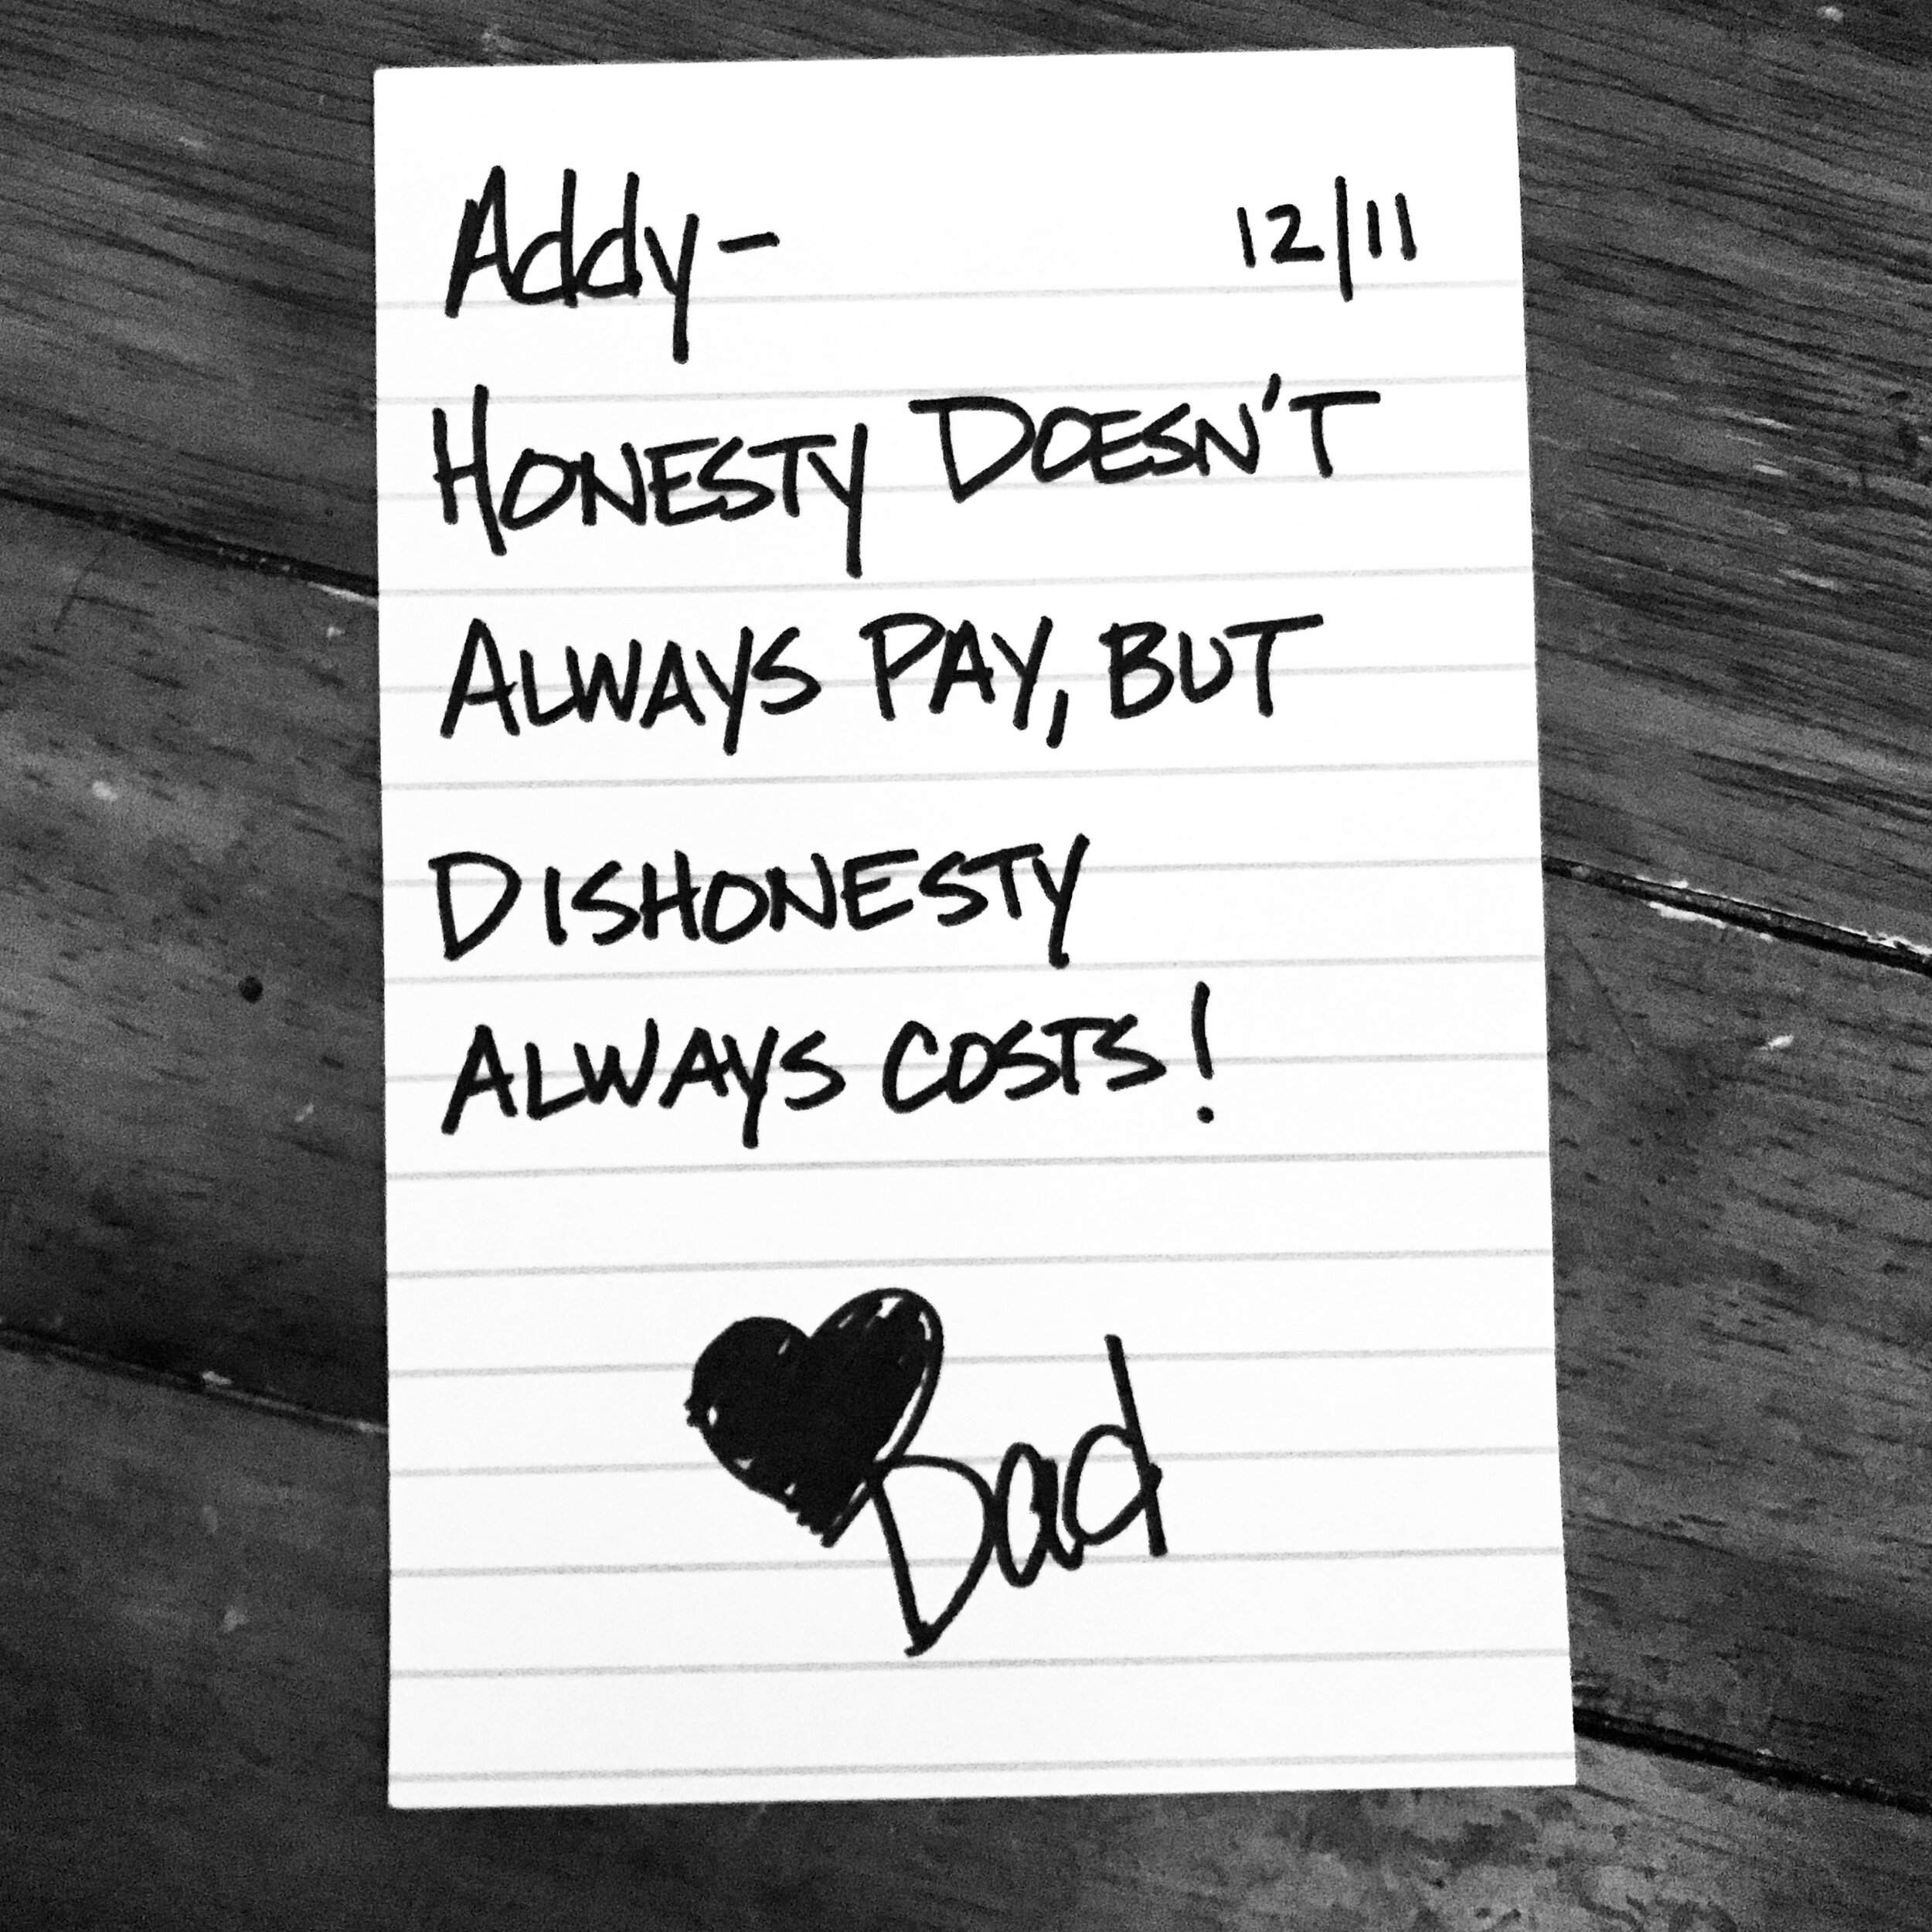 Addy- 12/11
HONESTY DOESN'T
ALWAYS PAY, BUT
DISHONESTY
ALWAYS COSTS!
Dad